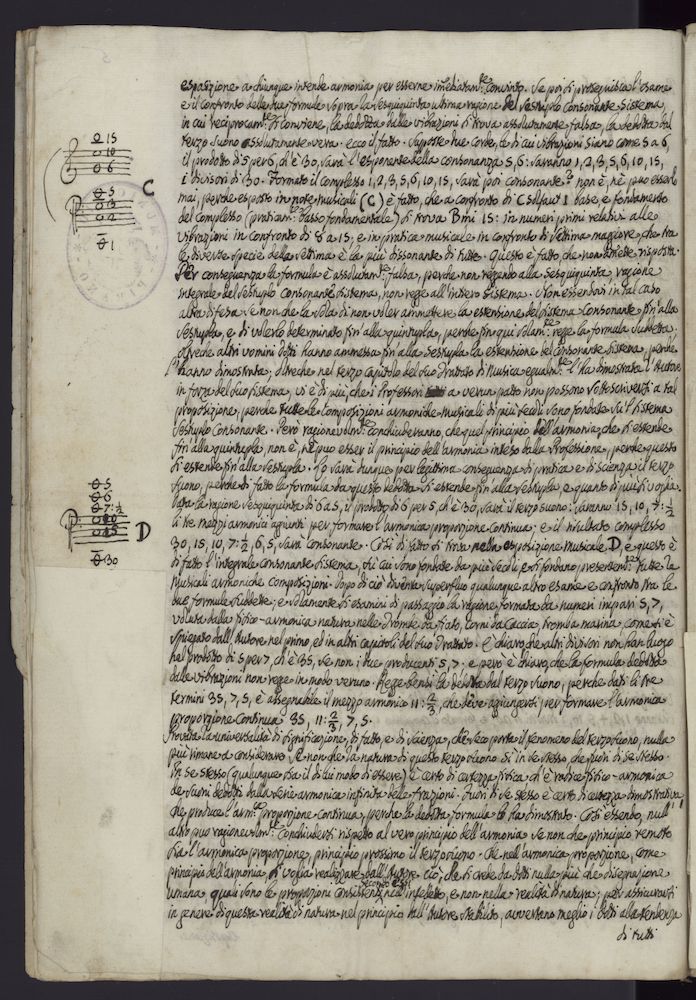 esposizione a chiunque intende armonia per esserne imediatam.te convinto. Se poi si proseguisca l'esame
e il confronto delle due formule sopra la sesquiquinta ultima ragione del sestuplo consonante sistema,
in cui reciprocam.te si conviene, la dedotta dalle vibrazioni si trova assolutamente falsa, la dedotta dal
terzo suono assolutamente vera. ecco il fatto. Siano due corde, le di cui vibrazioni siano come 5 a 6,
il prodotto di 5 per 6, ch'è 30, sarà l'esponente della consonanza 5, 6: saranno 1, 2, 3, 5, 6, 10, 15,
i divisori di 30. Formato il complesso 1, 2, 3, 5, 6, 10, 15, sarà poi consonante? non è, nè può esserlo
mai, perche esposto in note musicali (C) è fatto, che a confronto di C solfaut 1 base, e fondamento
del complesso (praticam.te Basso fondamentale) si trova B mi 15: in numeri primi relativi alle
vibrazioni in confronto di 8 a 15; e in pratica musicale in confronto di settima maggiore, che tra
le diverse specie della settima è la più dissonante di tutte. Questo è fatto, che non ammette risposta.
Per conseguenza la formula è assolutam.te falsa, perche non reggendo alla sesquiquinta ragione
integrale del sestuplo consonante sistema, non regge all'intero sistema. Non essendovi in tal caso
altra difesa se non che la sola di non voler ammettere la estensione del sistema consonante fin alla
sestupla, e di volerlo determinato fin alla quintupla, perche fin qui solam.te regge la formula suddetta,
oltreche altri uomini dotti hanno ammessa fin alla sestupla la estensione del consonante sistema, perche
l'hanno dimostrata; oltreche nel terzo capitolo del suo Trattato di Musica egualm.te l'ha dimostrata l'Autore
in forza del suo sistema, vi è di più, che i Professori a verun patto non possono sottoscriversi a tal
proposizione, perche tutte le composizioni armoniche musicali di più secoli sono fondate su'l sistema
sestuplo consonante. Però ragionevolm.te conchiuderanno, che quel principio dell'armonia, che si estende
fin alla quintupla, non è, nè può esser il principio dell'armonia intesa dalla Professione, perche questo
si estende fin alla sestupla. Lo sarà dunque per legitima conseguenza di pratica e di scienza il terzo
suono, perche di fatto la formula da questo dedotta si estende fin alla sestupla, e quanto di più si voglia.
Data la ragione sesquiquinta di 6 a 5, il prodotto di 6 per 5, ch'è 30, sarà il terzo suono: saranno 15, 10, 7:1/2
li tre mezzi armonici aggiunti per formare l'armonica proporzione continua: e il risultato complesso
30, 15, 10, 7:1/2, 6, 5, sarà consonante. Così di fatto si trova nella esposizione musicale D, e questo è
di fatto l'integrale consonante sistema, su cui sono fondate da più secoli e si fondano presentem.te tutte le
musicali armoniche composizioni. Dopo di ciò diventa superfluo qualunque altro esame e confronto tra le
due formule suddette; e solamente si esamini di passaggio la ragione formata da numeri impari 5, 7,
voluta dalla fisico-armonica natura nelle Trombe da fiato, Corni da Caccia, tromba marina, come si è
spiegato dall'Autore nel primo, ed in altri capitoli del suo Trattato. È chiaro, che altri divisori non han luogo
nel prodotto di 5 per 7, ch'è 35, se non i due producenti 5, 7. e però è chiaro, che la formula dedotta
dalle vibrazioni non regge in modo veruno. Regge bensì la dedotta dal terzo suono, perche dati li tre
termini 35, 7, 5, è assegnabile il mezzo armonico 11:2/3, che deve aggiungersi per formare l'armonica
proporzione continua 35, 11:2/3, 7, 5.
Provata la universalità di significazione, di fatto, e di scienza, che seco porta il fenomeno del terzo suono, nulla
più rimane a considerare se non che la natura di questo terzo suono sì in se stesso, che fuori di se stesso.
In se stesso (qualunque sia il di lui modo di essere) è certo di certezza fisica ch'è radice fisico-armonica
de' suoni dedotti dalla serie armonica infinita delle frazioni. Fuori di se stesso è certo di certezza dimostrativa,
che produce l'arm.ca proporzione continua, perche la dedotta formula lo ha dimostrato. Così essendo, null'
altro può ragionevolm.te conchiudersi rispetto al vero principio dell'armonia se non che principio remoto
sia l'armonica proporzione, principio prossimo il terzo suono. Che nell'armonica proporzione, come
principio dell'armonia, si voglia realizzare dall'Autore ciò, che si crede da dotti nulla più che disegnazione
umana, quali sono le proporzioni consistenti secondo essi nell'intelletto, e non nella realità di natura; per assicurarsi
in genere di questa realità di natura nel principio dall'Autore stabilito, avvertano meglio i Dotti alla tendenza
di tutti
15
10
6
5
3
2
1
C
5
6
7:1/2
10
15
30
D